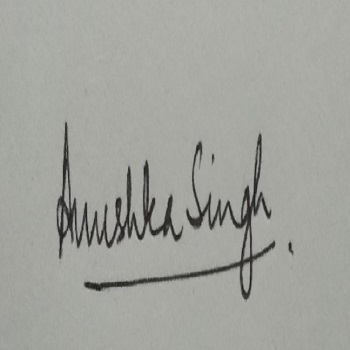 Anushka Singh.